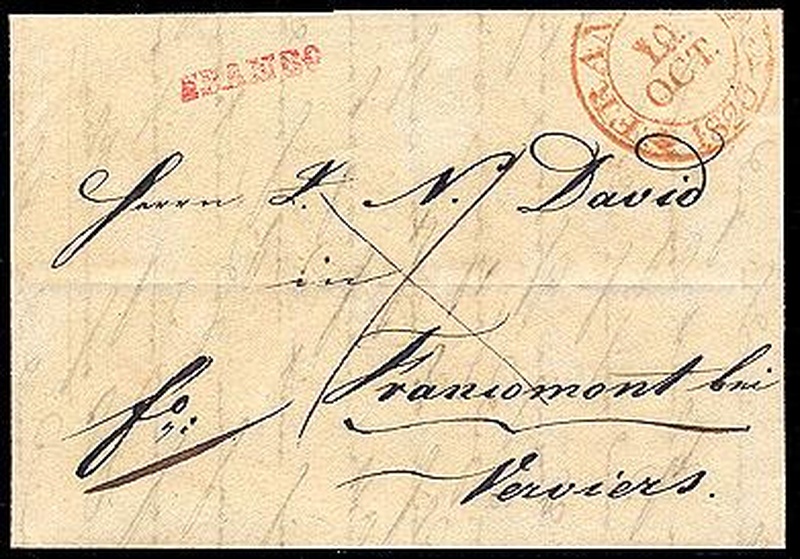 FRANCO
FRA
10.
OCT.
182
Herrn L. N. David
in
Francomont bei
Verviers.
fo